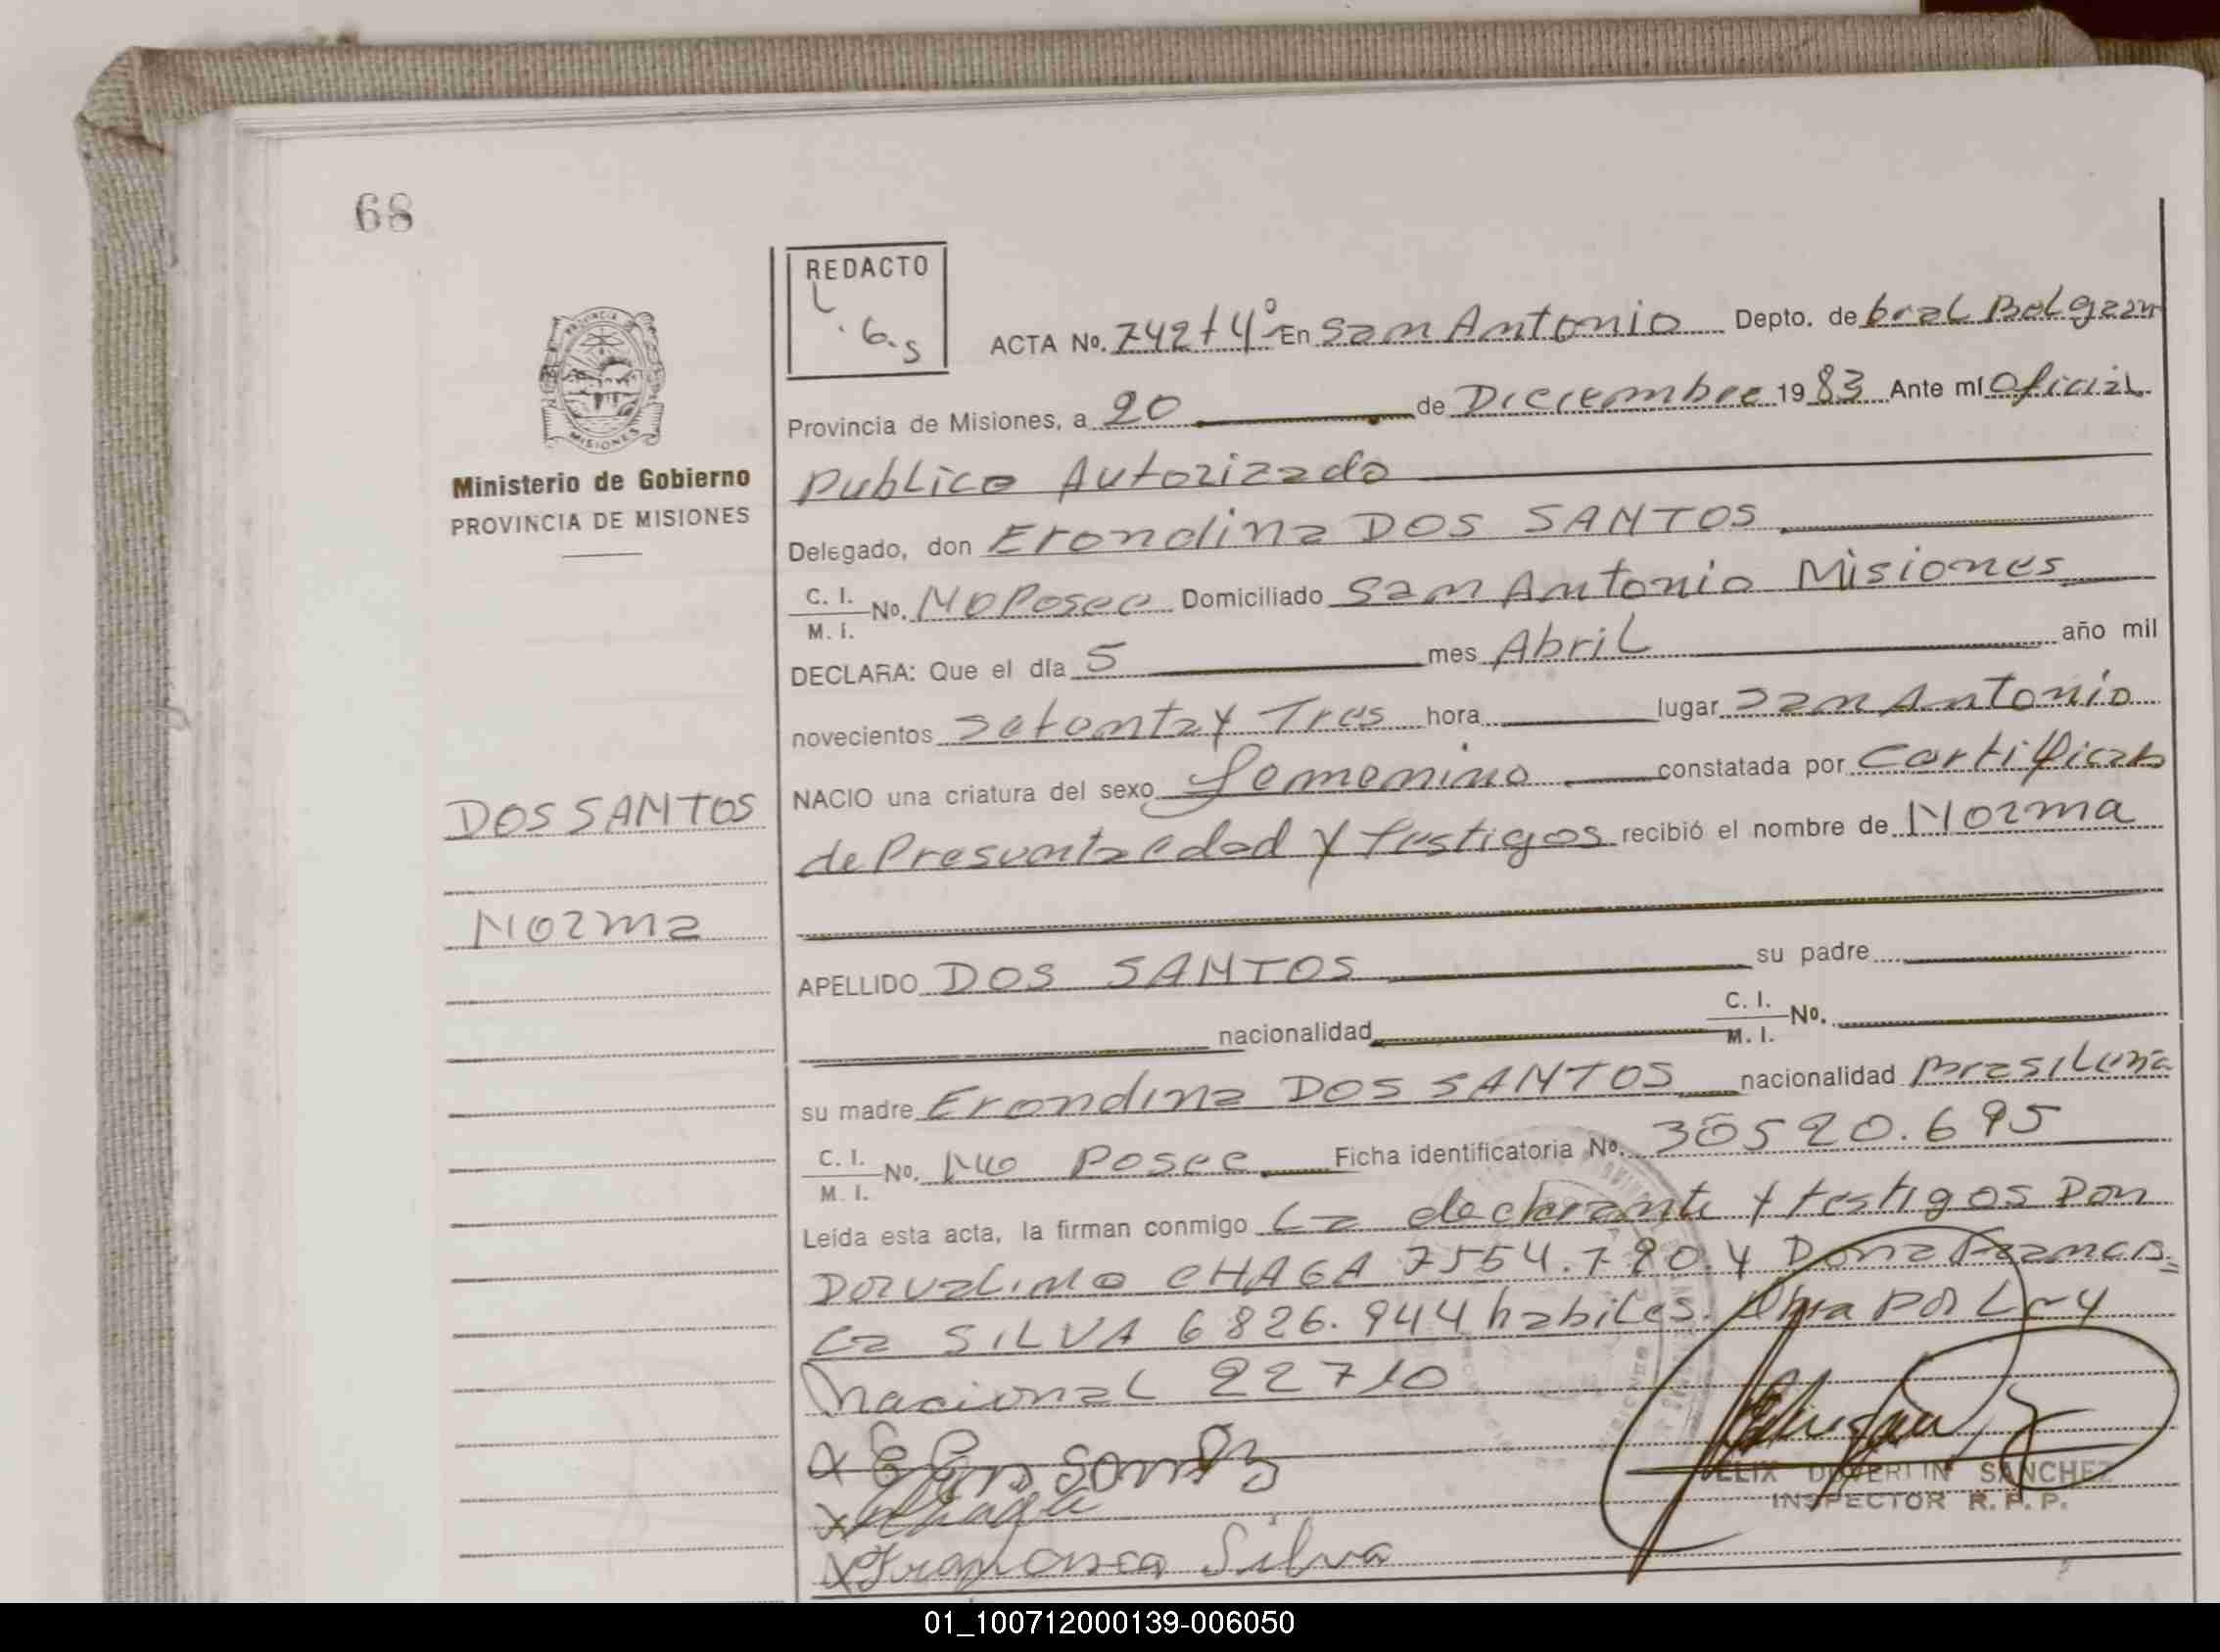 68
REDACTO
L.G.S
ACTA Nº. 742 t 4º En San Antonio Depto. de Gral Belgran
Provincia de Misiones, a 20 de Diciembre 19 83 Ante mí Oficial
Publico Autorizado
Delegado, don Erondina DOS SANTOS
C. I. M. I. No. No Posee Domiciliado San Antonio Misiones
DECLARA: Que el día 5 mes Abril año mil
novecientos setenta y Tres hora lugar San Antonio
NACIO una criatura del sexo femenino constatada por Certificado
de Presunta edad y testigos recibió el nombre de Norma
APELLIDO DOS SANTOS su padre
nacionalidad C. I. M. I. No.
su madre Erondina DOS SANTOS nacionalidad Brasilena
C. I. M. I. No. No Posee Ficha identificatoria No. 30520.695
Leída esta acta, la firman conmigo La declarante y testigos Don
Dorvalino CHAGA 7554.780 y Dona Francis=
ca SILVA 6826.944 habiles. por Ley
Nacional 22710
Chaga
Francisca Silva
FELIX DUVERLIN SANCHEZ
INSPECTOR R. P. P.
PROVINCIA DE
MISIONES
Ministerio de Gobierno
PROVINCIA DE MISIONES
DOS SANTOS
Norma
01_100712000139-006050